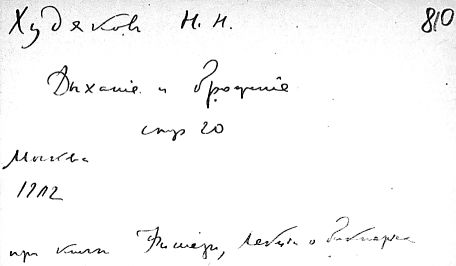 Худяков Н. Н. 810
Дыханіе и броженіе
стр 20
Москва
1912
при книге Фишера, Лекции о бактериях